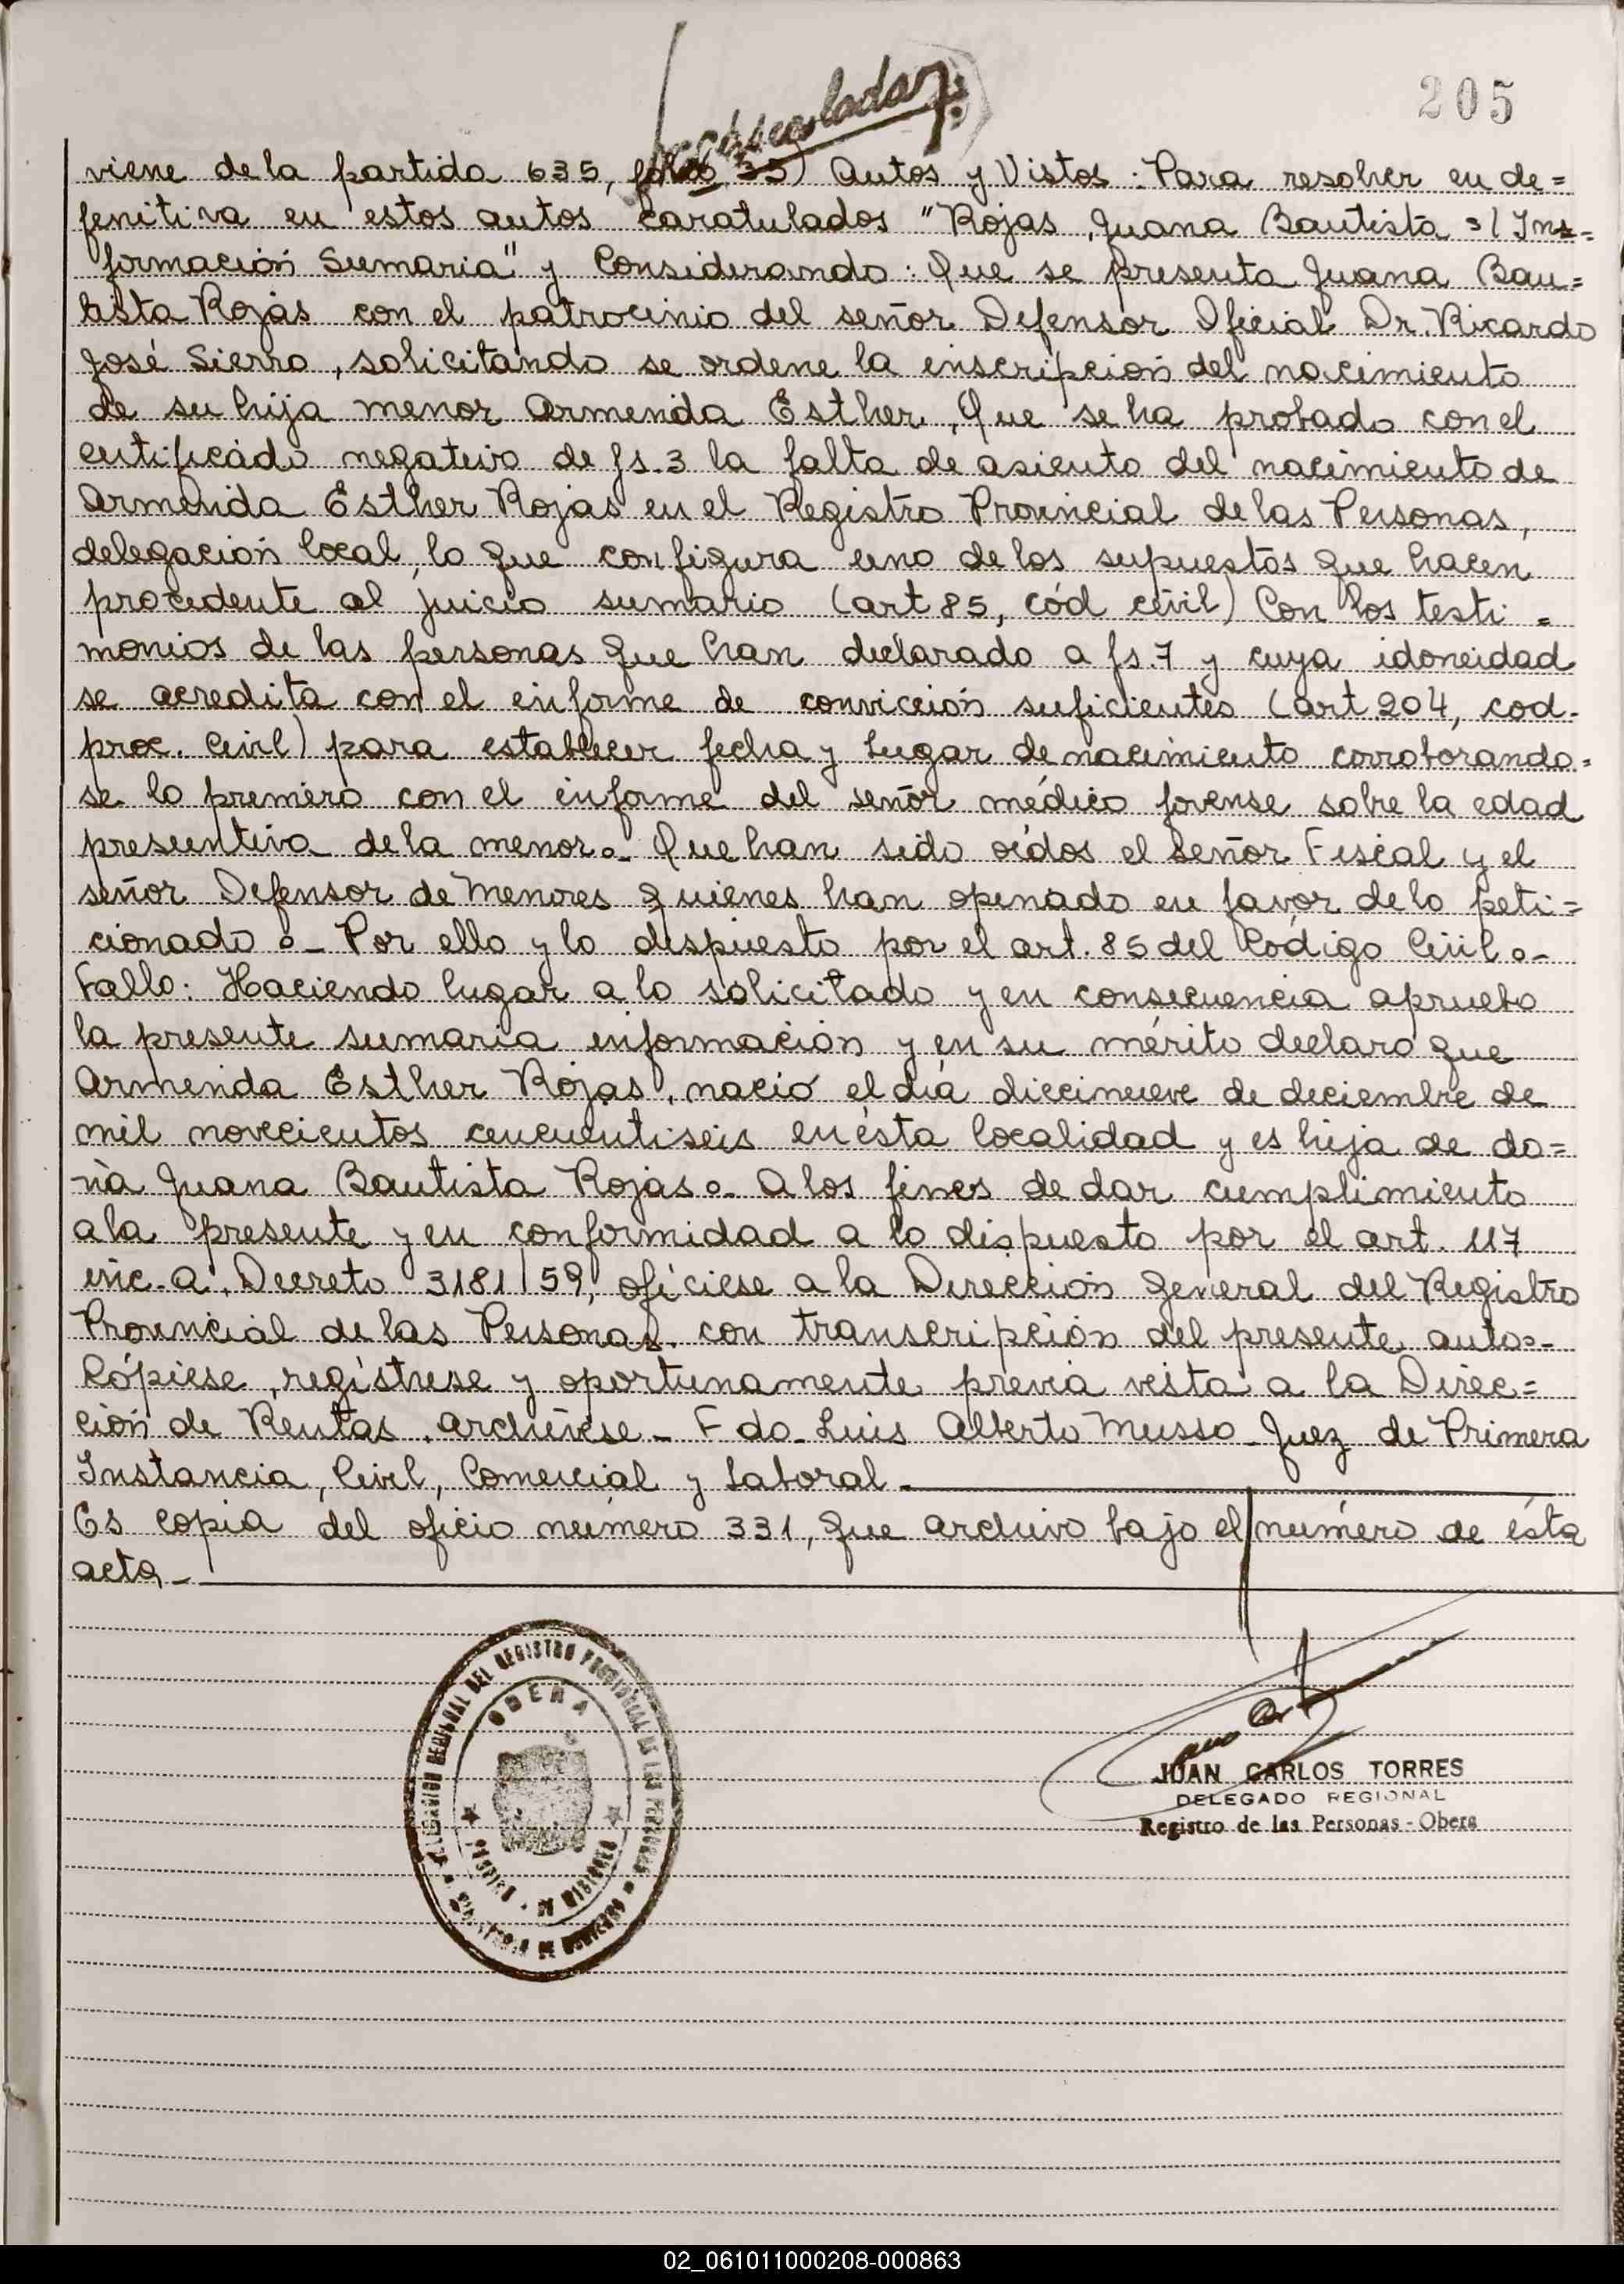 205
viene de la partida 635, folio 35) Autos y Vistos: Para resolver en de=
fenitiva en estos autos caratulados "Rojas, Juana Bautista s/ Ins=
formación Sumaria" y Considerando: Que se presenta Juana Bau=
tista Rojas con el patrocinio del señor Defensor Oficial Dr. Ricardo
José Sierra, solicitando se ordene la inscripción del nacimiento
de su hija menor Armenida Esther, Que se ha probado con el
certificado negativo de fs. 3 la falta de asiento del nacimiento de
Armenida Esther Rojas en el Registro Provincial de las Personas,
delegación local, lo que configura uno de los supuestos que hacen
procedente al juicio sumario (art 85, cód civil) Con los testi=
monios de las personas que han declarado a fs. 7 y cuya idoneidad
se acredita con el informe de convicción suficientes (art 204, cod.
proc. Civil) para establecer fecha y lugar de nacimiento corroborando=
se lo primero con el informe del señor médico forense sobre la edad
presuntiva de la menor.- Que han sido oídos el Señor Fiscal y el
señor Defensor de Menores quienes han opinado en favor de lo peti=
cionado.- Por ello y lo dispuesto por el art. 85 del Código Civil.-
Fallo: Haciendo lugar a lo solicitado y en consecuencia apruebo
la presente sumaria información y en su mérito declaro que
Armenida Esther Rojas, nació el día diecinueve de deciembre de
mil novecientos cincuentiseis en ésta localidad y es hija de do=
ña Juana Bautista Rojas.- A los fines de dar cumplimiento
a la presente y en conformidad a lo dispuesto por el art. 117
inc. a. Decreto 3181/59, ofíciese a la Dirección General del Registro
Provincial de las Personas con transcripción del presente auto.-
Cópiese, regístrese y oportunamente previa vista a la Direc=
ción de Rentas, archívese - Fdo - Luis Alberto Musso - Juez de Primera
Instancia, Civil, Comercial y Laboral.-
Es copia del oficio número 331, que archivo bajo el número de ésta
acta.-
DELEGACION REGIONAL DEL REGISTRO PROVINCIAL DE LAS PERSONAS
OBERA
DE MISIONES
DE GOBIERNO
JUAN CARLOS TORRES
DELEGADO REGIONAL
Registro de las Personas - Obera
02_061011000208-000863